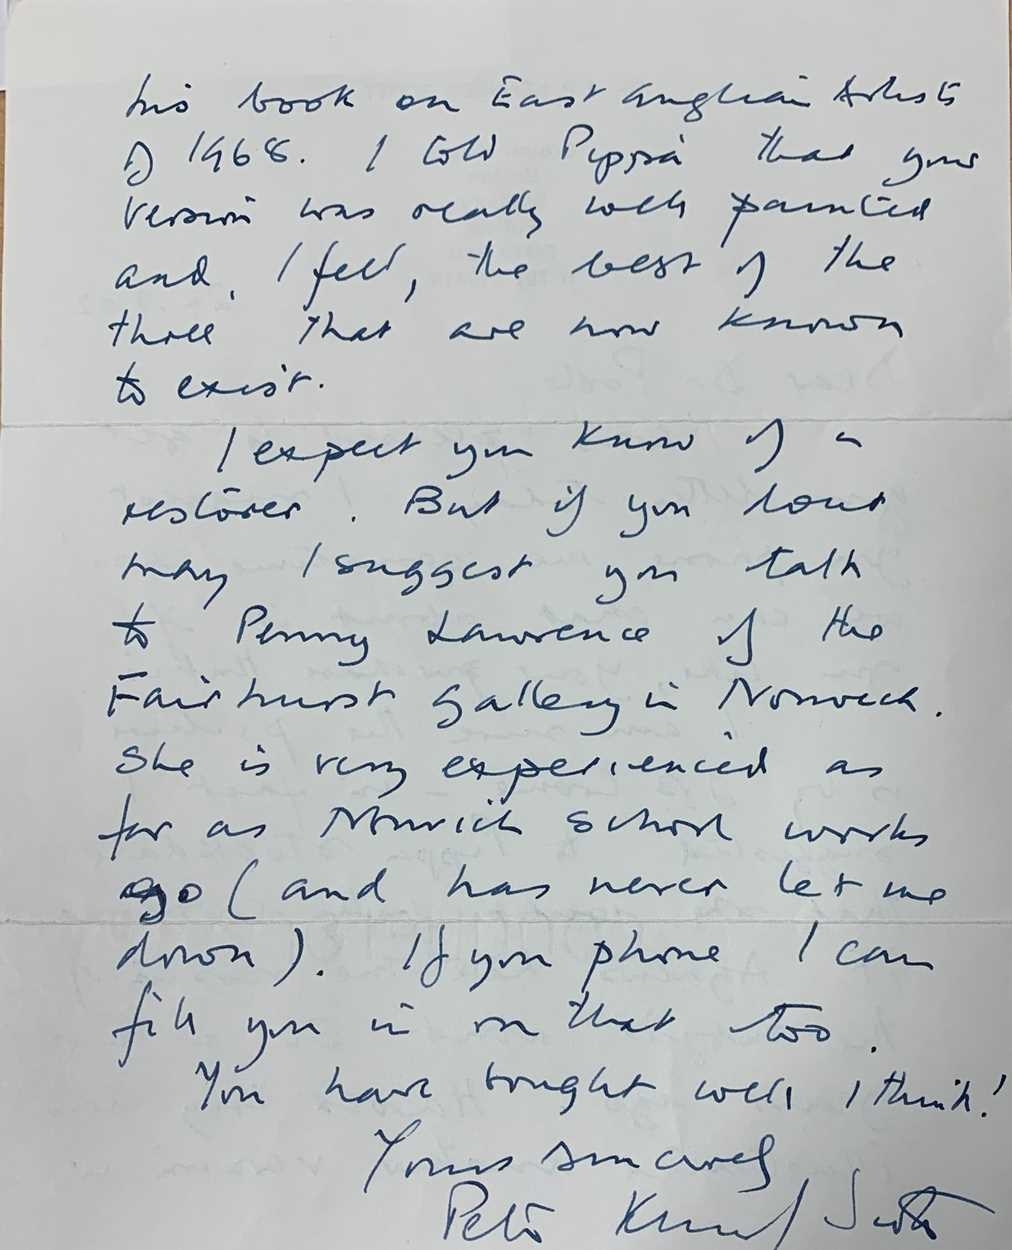 his book on East Anglian Artists
of 1968. I told Pippa that your
version was really well painted
and, I felt, the best of the
three that are now known
to exist.
I expect you know of a
restorer. But if you don't
may I suggest you talk
to Penny Lawrence of the
Fairhurst Gallery in Norwich.
She is very experienced as
far as Norwich School works
go (and has never let me
down). If you phone I can
fill you in on that too.
You have bought well I think!
Yours sincerely
Peter